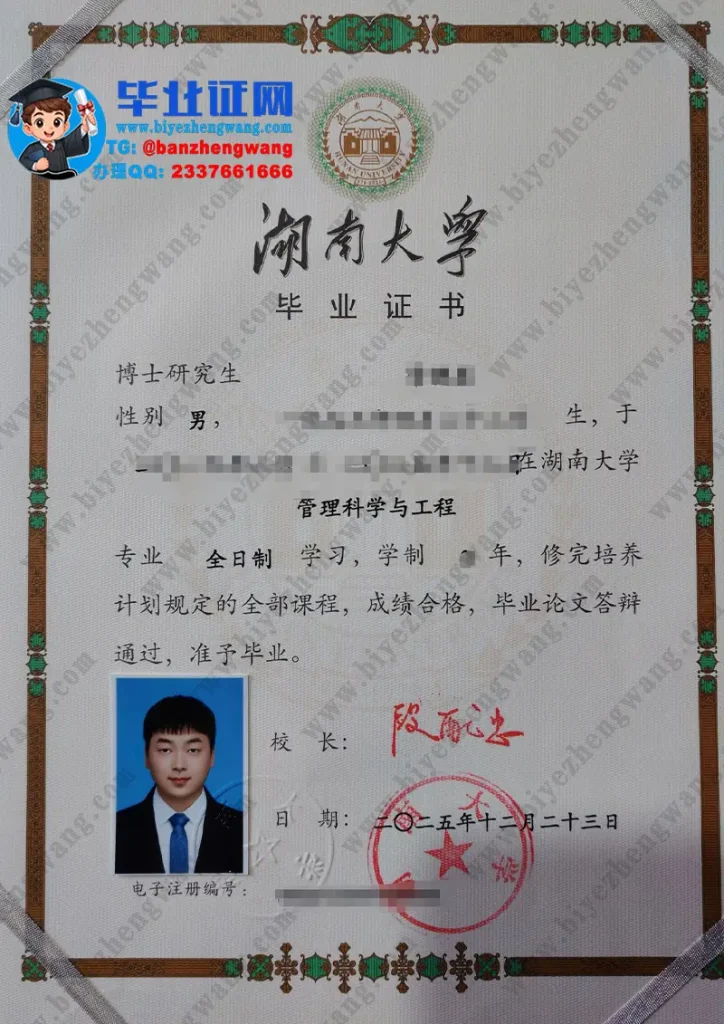 毕业证网
www.biyezhengwang.com
TG: @banzhengwang
办理QQ: 2337661666
湖南大学
HUNAN UNIVERSITY
湖南大学
毕业证书
博士研究生
性别 男， 生，于
在湖南大学
管理科学与工程
专业 全日制 学习，学制 年，修完培养
计划规定的全部课程，成绩合格，毕业论文答辩
通过，准予毕业。
校 长：段献忠
日 期：二〇二五年十二月二十三日
电子注册编号：
www.biyezhengwang.com